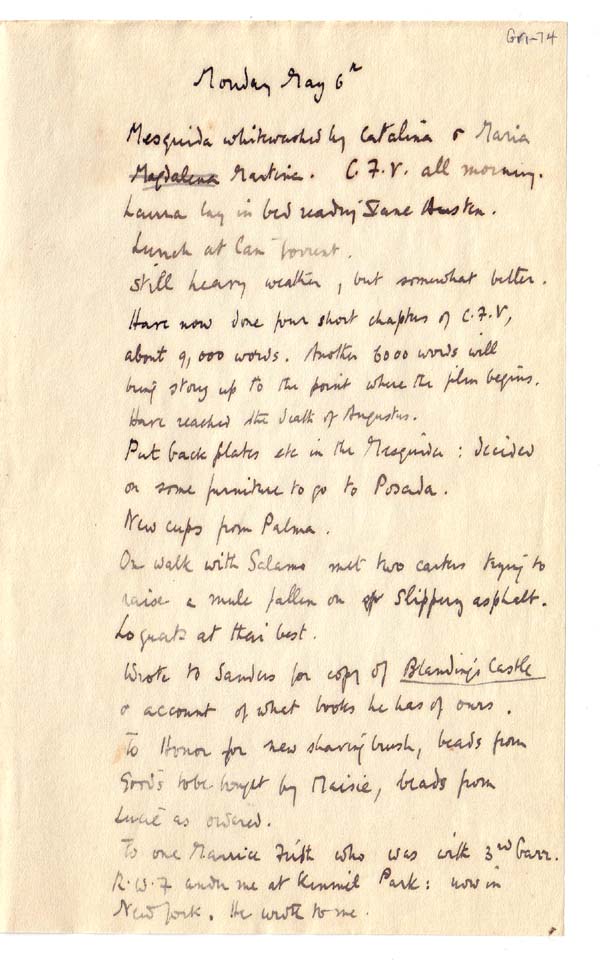 GM-74
Monday May 6th
Mesquida whitewashed by Catalina & Maria
Magdalena Martina. C.F.V. all morning.
Laura lay in bed reading Jane Austen.
Lunch at Can Torrent.
Still heavy weather, but somewhat better.
Have now done four short chapters of C.F.V,
about 9,000 words. Another 6000 words will
bring story up to the point where the film begins.
Have reached the death of Augustus.
Put back plates etc in the Mesquida: decided
on some furniture to go to Posada.
New cups from Palma.
On walk with Salamo met two carters trying to
raise a mule fallen on slippery asphalt.
Loquats at their best.
Wrote to Sanders for copy of Blandings Castle
& account of what books he has of ours.
To Honor for new shaving brush, beads from
Goods to be bought by Maisie, beads from
Lucie as ordered.
To one Maurice Frith who was with 3rd Garr.
R.W.F under me at Kinmel Park: now in
New York. He wrote to me.